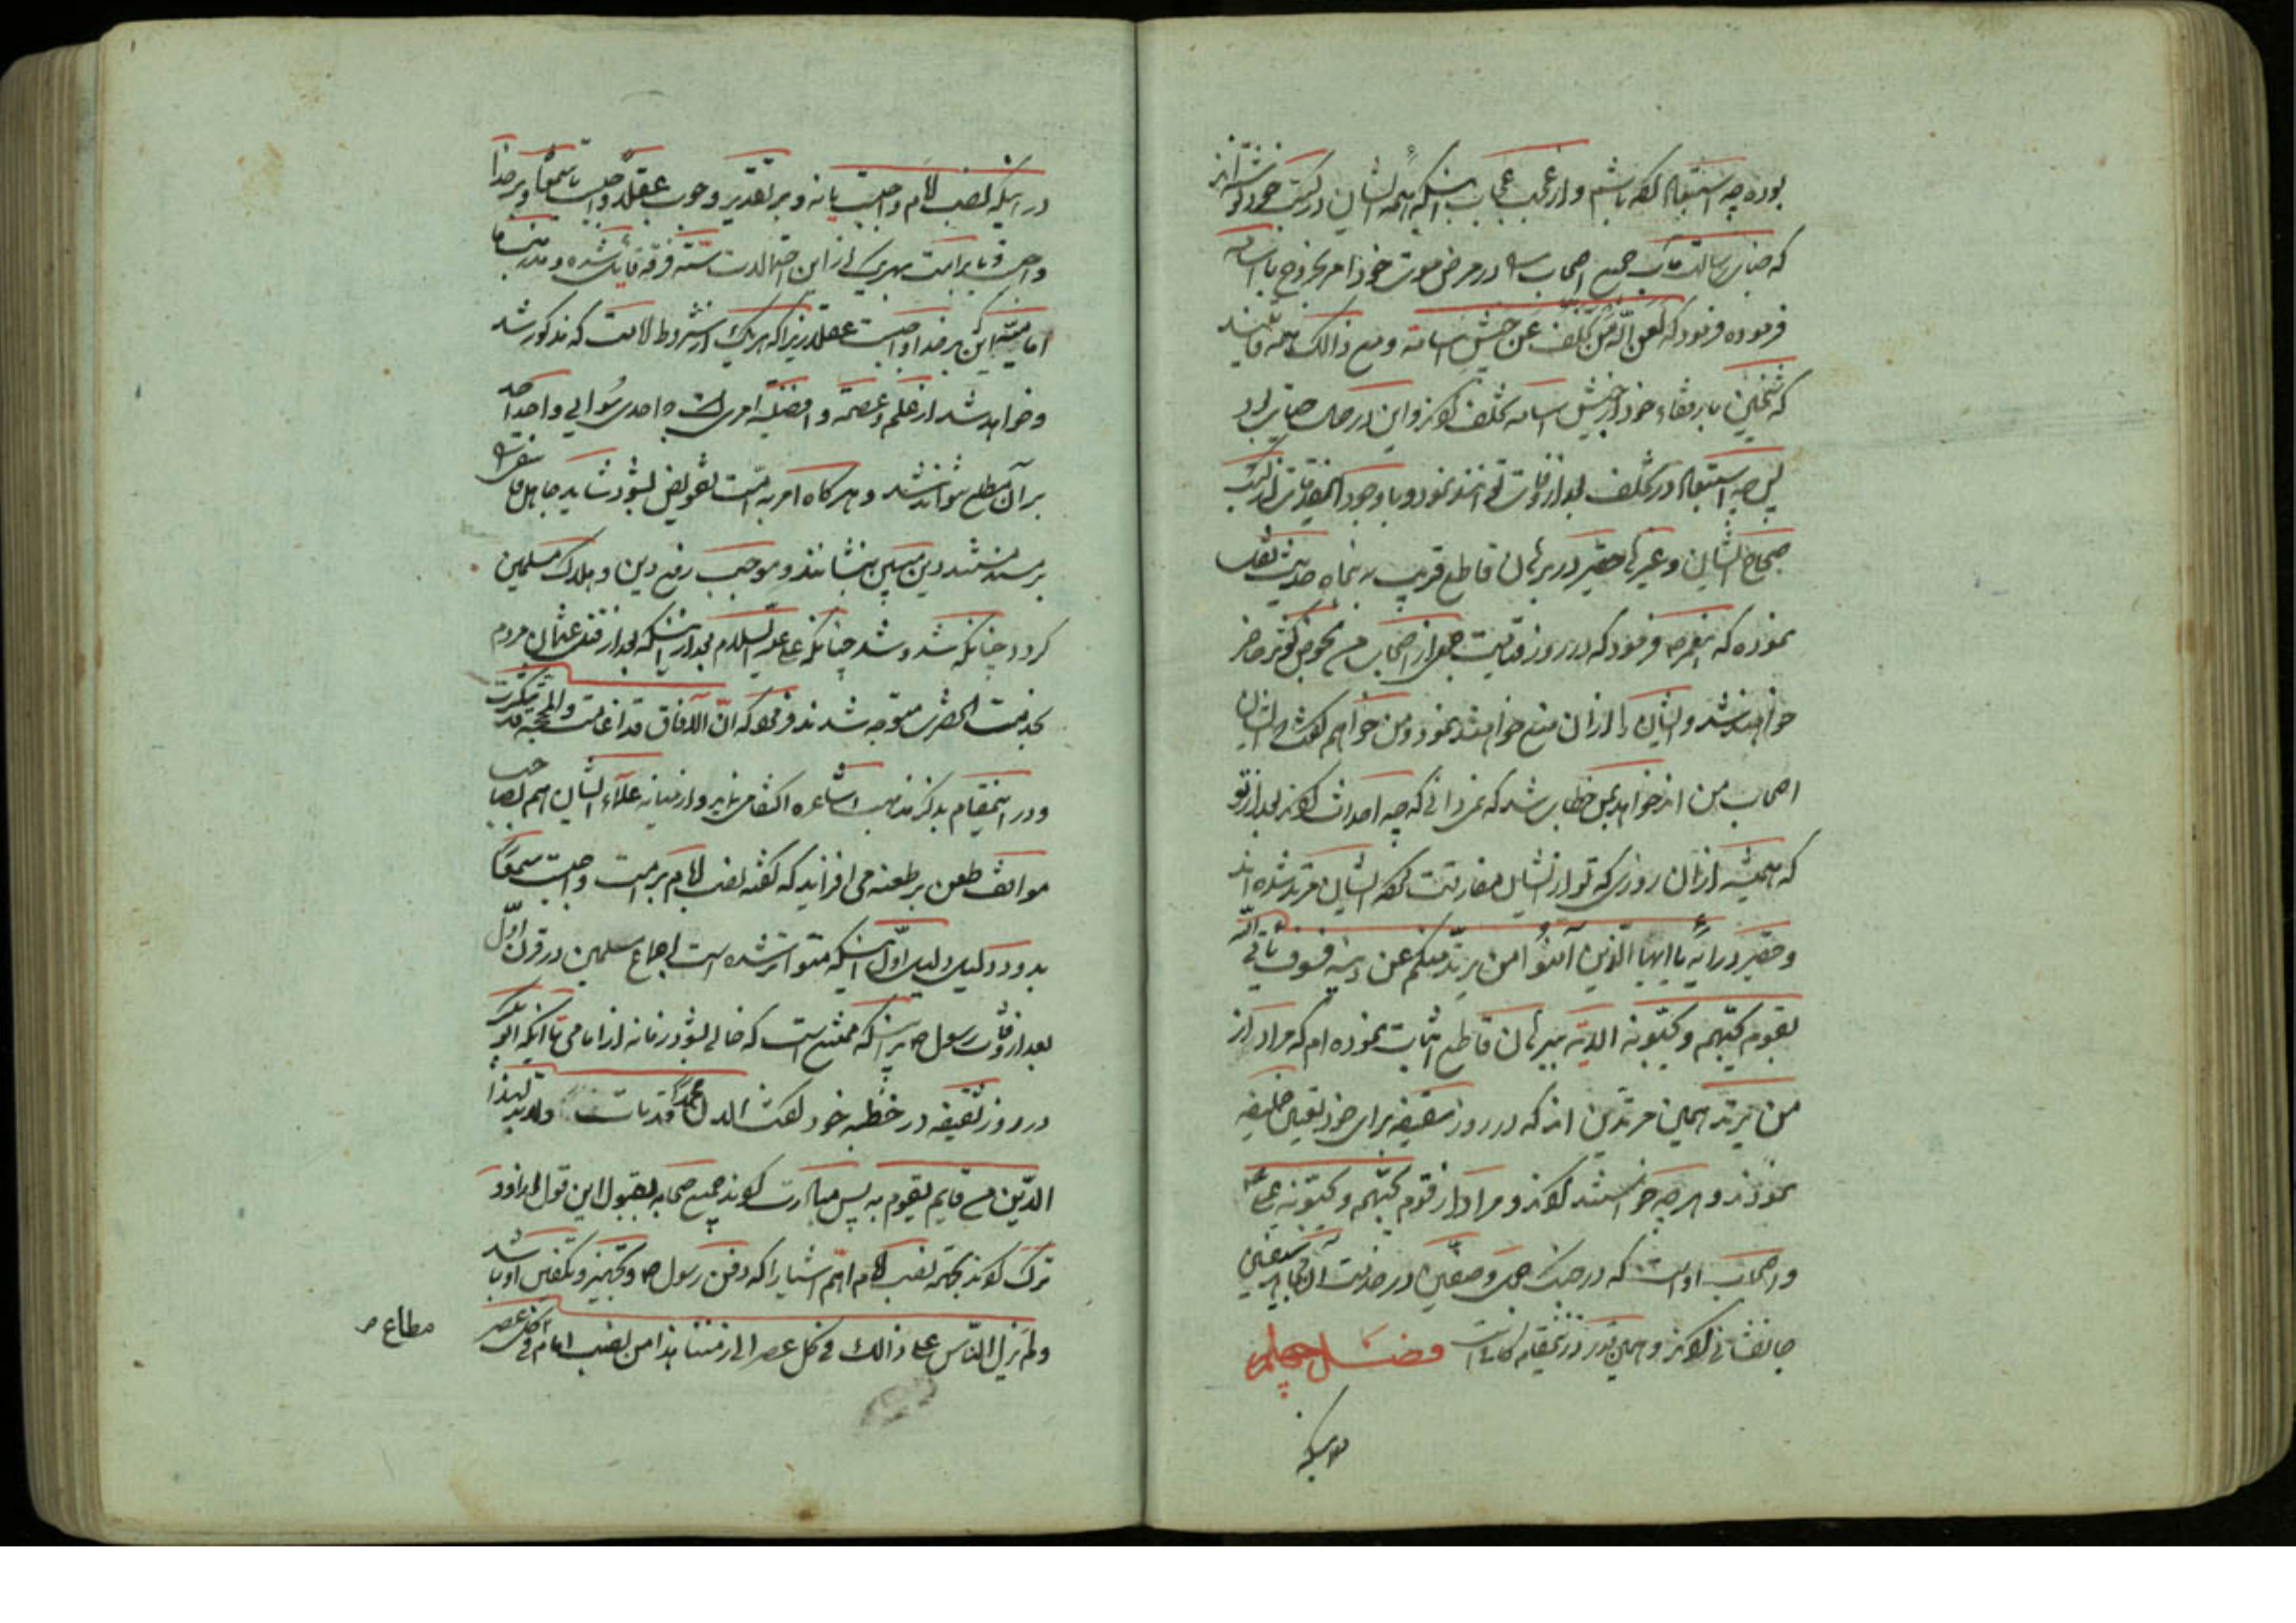 بوده چه استبعاد گفته باشم و از عجب عجایب اینکه همه ایشان در کتب خود نوشته‌اند
که جناب رسالت مآب جمیع اصحاب را در مرض موت خود امر بخروج با اسامه
فرموده فرمود که لعن الله من تخلف عن جیش اسامه و مع ذالک همه قایلند
که شیخین با رفقاء خود از جیش اسامه تخلف کردند و این در حال حیات بود
پس چه استبعاد در تخلف بعد از وفات توانند نمود و با وجود این مقدمات در کتب
صحاح ایشان و غیرها حقیر در برهان قاطع قریب به پنجاه حدیث نقل
نموده که پیغمبر ص فرمود که در روز قیامت جمعی از اصحاب من بحوض کوثر حاضر
خواهند شد و ایشان را از آن منع خواهند نمود و من خواهم گفت ایشان
اصحاب من اند خواهد بمن خطاب شد که نمی دانی که چه احداث کردند بعد از تو
که همیشه از آن روزی که تو از ایشان مفارقت کرده ایشان مرتد شده اند
و حقیر در آیه یا ایها الذین آمنوا من یرتد منکم عن دینه فسوف یأتی الله
بقوم یحبهم و یحبونه الآیه ببرهان قاطع اثبات نموده ام که مراد از
من یرتد همین مرتدین اند که در روز سقیفه برای خود تعیین خلیفه
نمودند و هرچه خواستند کردند و مراد از قوم یحبهم و یحبونه علی ع
و اصحاب اوست که در جنگ جمل و صفین در خدمت آن جناب
جانفشانی کردند و همین قدر در اینمقام کافی است فصل چهلم
در اینکه
در اینکه نصب امام واجبست یا نه و بر تقدیر وجوب عقلا واجبست یا سمعا و بر خدا
واجبست و یا بر امت بهر یک از این احتمالات سته فرقه قایل شده و مذهب ما
امامیه این بر خدا واجبست عقلا زیرا که هر یک از شروط امامت که مذکور شد
و خواهد شد از علم و عصمة و افضلیة امری است احدی سوای واحد احد
بر آن مطلع نتواند شد و هرگاه امر به امت تفویض شود شاید جاهل فاسقی را
بر مسند مسند دین مبین بنشانند و موجب رفع دین و هلاک مسلمین
گردد چنانکه شد و شد چنانکه علی علیه السلام بعد از اینکه بعد از قتل عثمان مردم
بخدمت آنحضرت متوجه شدند فرمود که ان الآفاق قد اغامت والمحجة قد تنکرت
و در اینمقام بذکر مذهب اشاعره اکتفا می نماید و از میانه علماء ایشان اهم لصاحب
مواقف طعن بر طعنه می افزاید که گفته نصب امام بر امت واجبست سمعا
بدو دلیل دلیل اول اینکه متواتر شده است اجماع مسلمین در قرن اول
بعد از وفات رسول ص بر اینکه ممتنع است که خالی بشود زمانه از امامی تا آنکه ابو بکر
در روز سقیفه در خطبه خود گفت الا ان محمدا قد مات و لا بد لهذا
الدین من قایم یقوم به پس مبادرت کردند جمیع صحابه بقبول این قول ابو بکر و
ترک کردند بجهة نصب امام اهم اشیا را که دفن رسول ص و تجهیز و تکفین او باشد
و لم یزل الناس علی ذالک فی کل عصر الی زمننا هذا من نصب امام فی کل عصر
مطاع ص